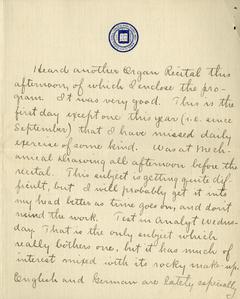 Heard another Organ Recital this
afternoon, of which I enclose the pro-
gram. It was very good. This is the
first day except one this year (i.e. since
September) that I have missed daily
exercise of some kind. Was at Mech-
anical drawing all afternoon before the
recital. This subject is getting quite dif-
ficult, but I will probably get it into
my head better as time goes on, and don't
mind the work. Test in Analyt Wednes-
day. That is the only subject which
really bothers one, but it has much of
interest mixed with its rocky make-up.
English and German are lately especially